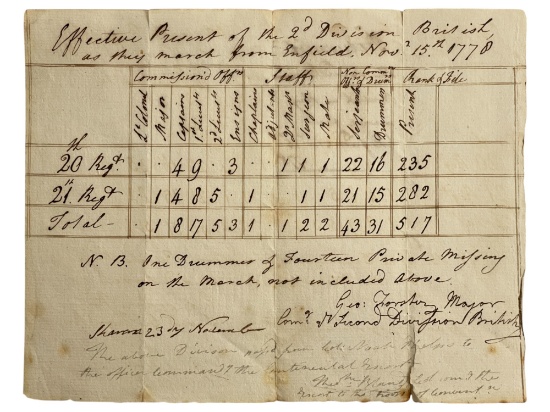 Effective Present of the 2d Division British,
as they march from Enfield, Novr. 15.th 1778
Commissiond Offrs Staff Non Commn Offrs & Drumrs Rank & File
Lt Colonel Major Captains 1st Lieuts 2d Lieuts Ensigns Chaplains Adjutants Qr Mastr Surgeon Mate Serjeants Drummers Present
20th Regt. · · 4 9 · 3 · · 1 1 1 22 16 235
21t Regt · 1 4 8 5 · 1 · · 1 1 21 15 282
Total — · 1 8 17 5 3 1 · 1 2 2 43 31 517
N. B. One Drummer & Fourteen Private Missing
on the March, not included above.
Geo: Forster Major
Sharon 23d Novembr Comg. Second Division British
The above Division from to
the officer Command the Continental
the
to the troops of Convent n